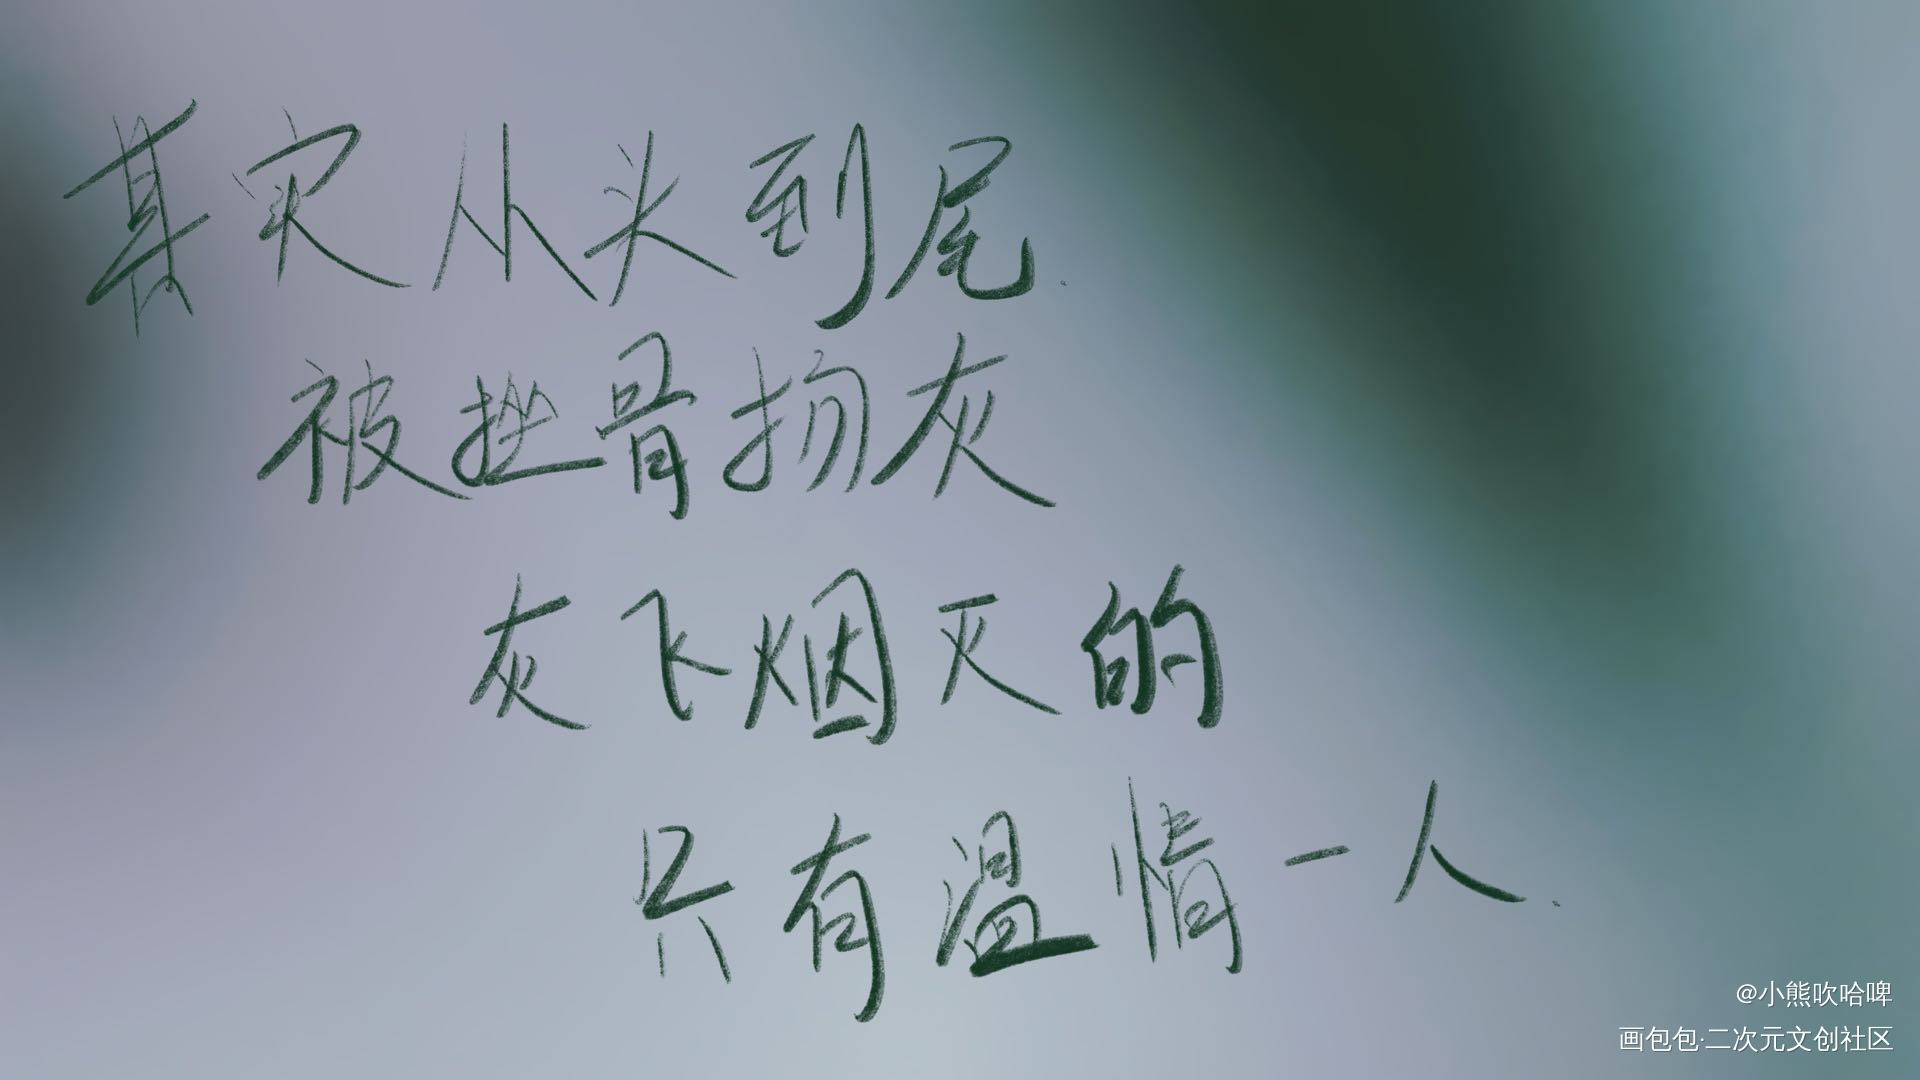 其实从头到尾.
被挫骨扬灰
灰飞烟灭的
只有温情一人.
@小熊吹哈啤
画包包·二次元文创社区